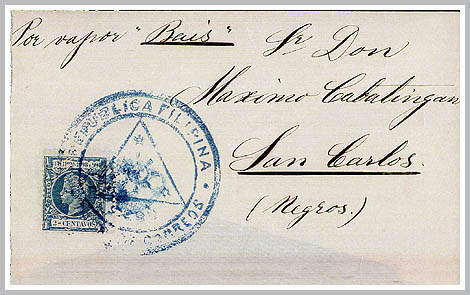 Por vapor "Bais"
Sr Don
Maximo Cabalingan
San Carlos.
(Negros.)
REPUBLICA FILIPINA
CORREOS
2 CENTAVOS